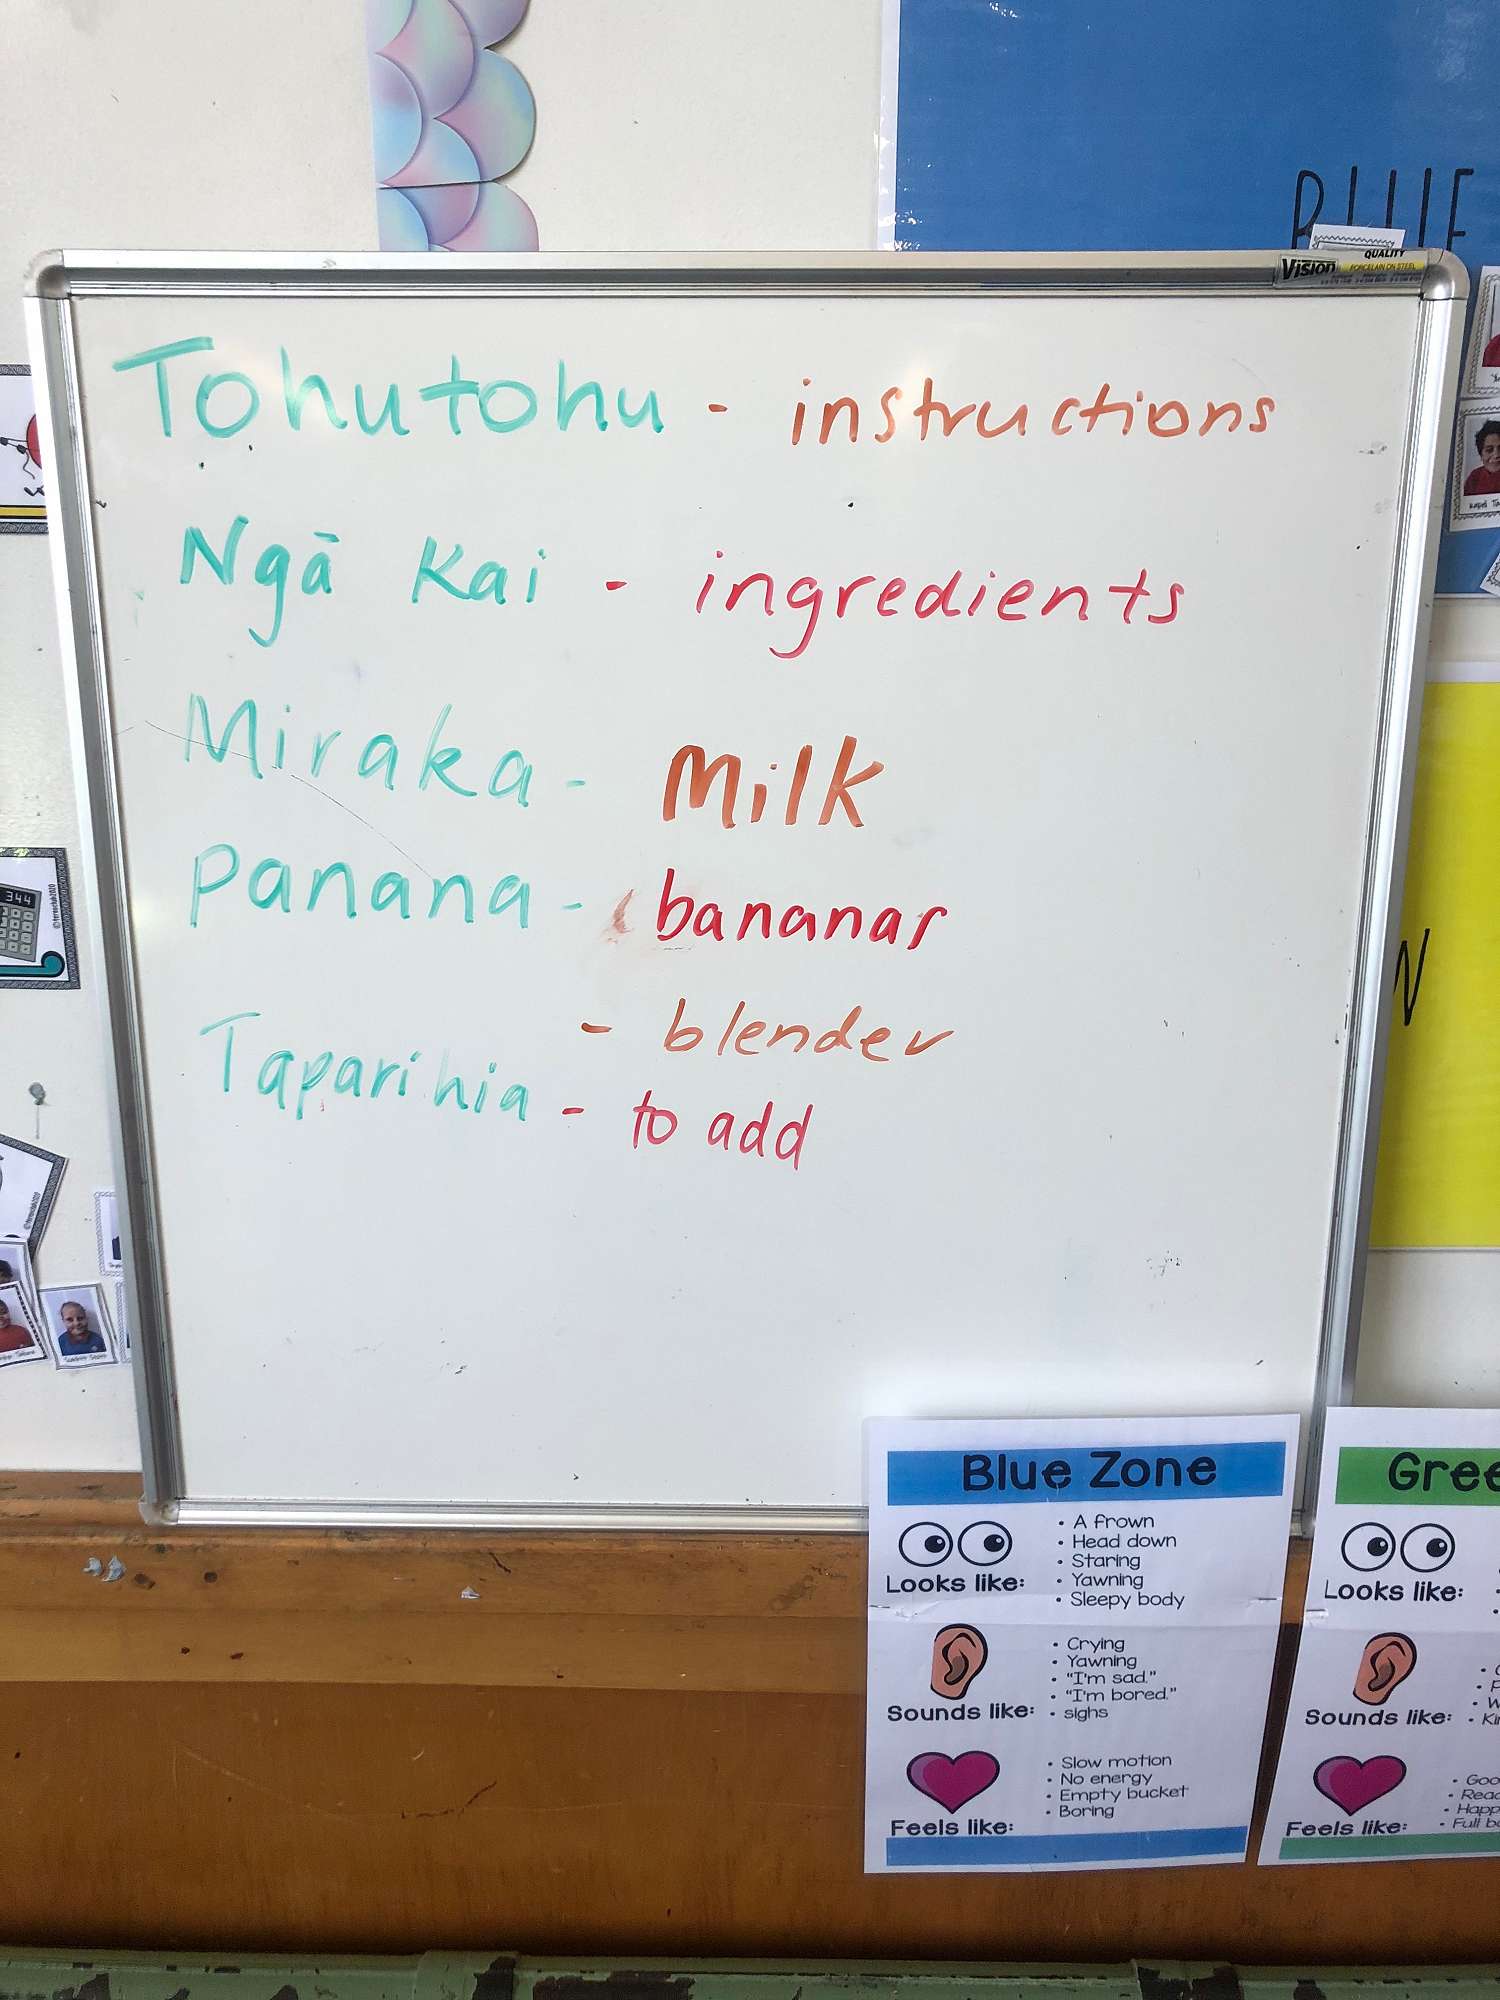 BLUE
Vision
QUALITY
PORCELAIN ON STEEL
Tohutohu - instructions
Ngā Kai - ingredients
Miraka - Milk
Panana - bananas
- blender
Taparihia - to add
344
N
Blue Zone
Looks like:
• A frown
• Head down
• Staring
• Yawning
• Sleepy body
Sounds like:
• Crying
• Yawning
• "I'm sad."
• "I'm bored."
• sighs
Feels like:
• Slow motion
• No energy
• Empty bucket
• Boring
Gree
Looks like:
Sounds like:
Feels like:
• Goo
• Reac
• Happ
• Full b